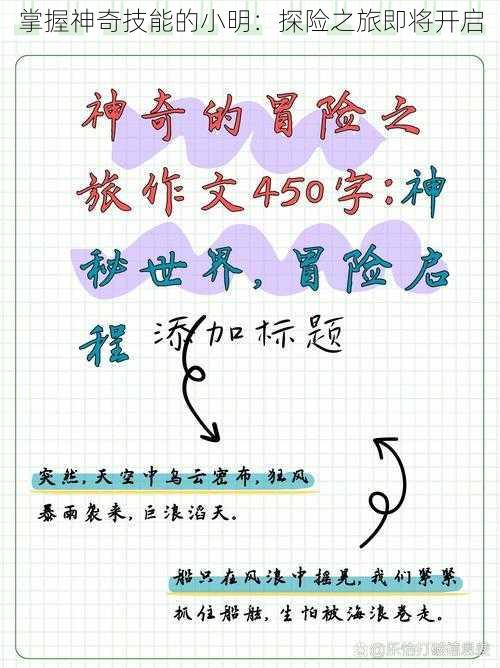 掌握神奇技能的小明：探险之旅即将开启
神奇的冒险之
旅作文450字:神
秘世界,冒险启
程 添加标题
突然,天空中乌云密布,狂风
暴雨袭来,巨浪滔天。
船只在风浪中摇晃,我们紧紧
抓住船舷,生怕被海浪卷走。